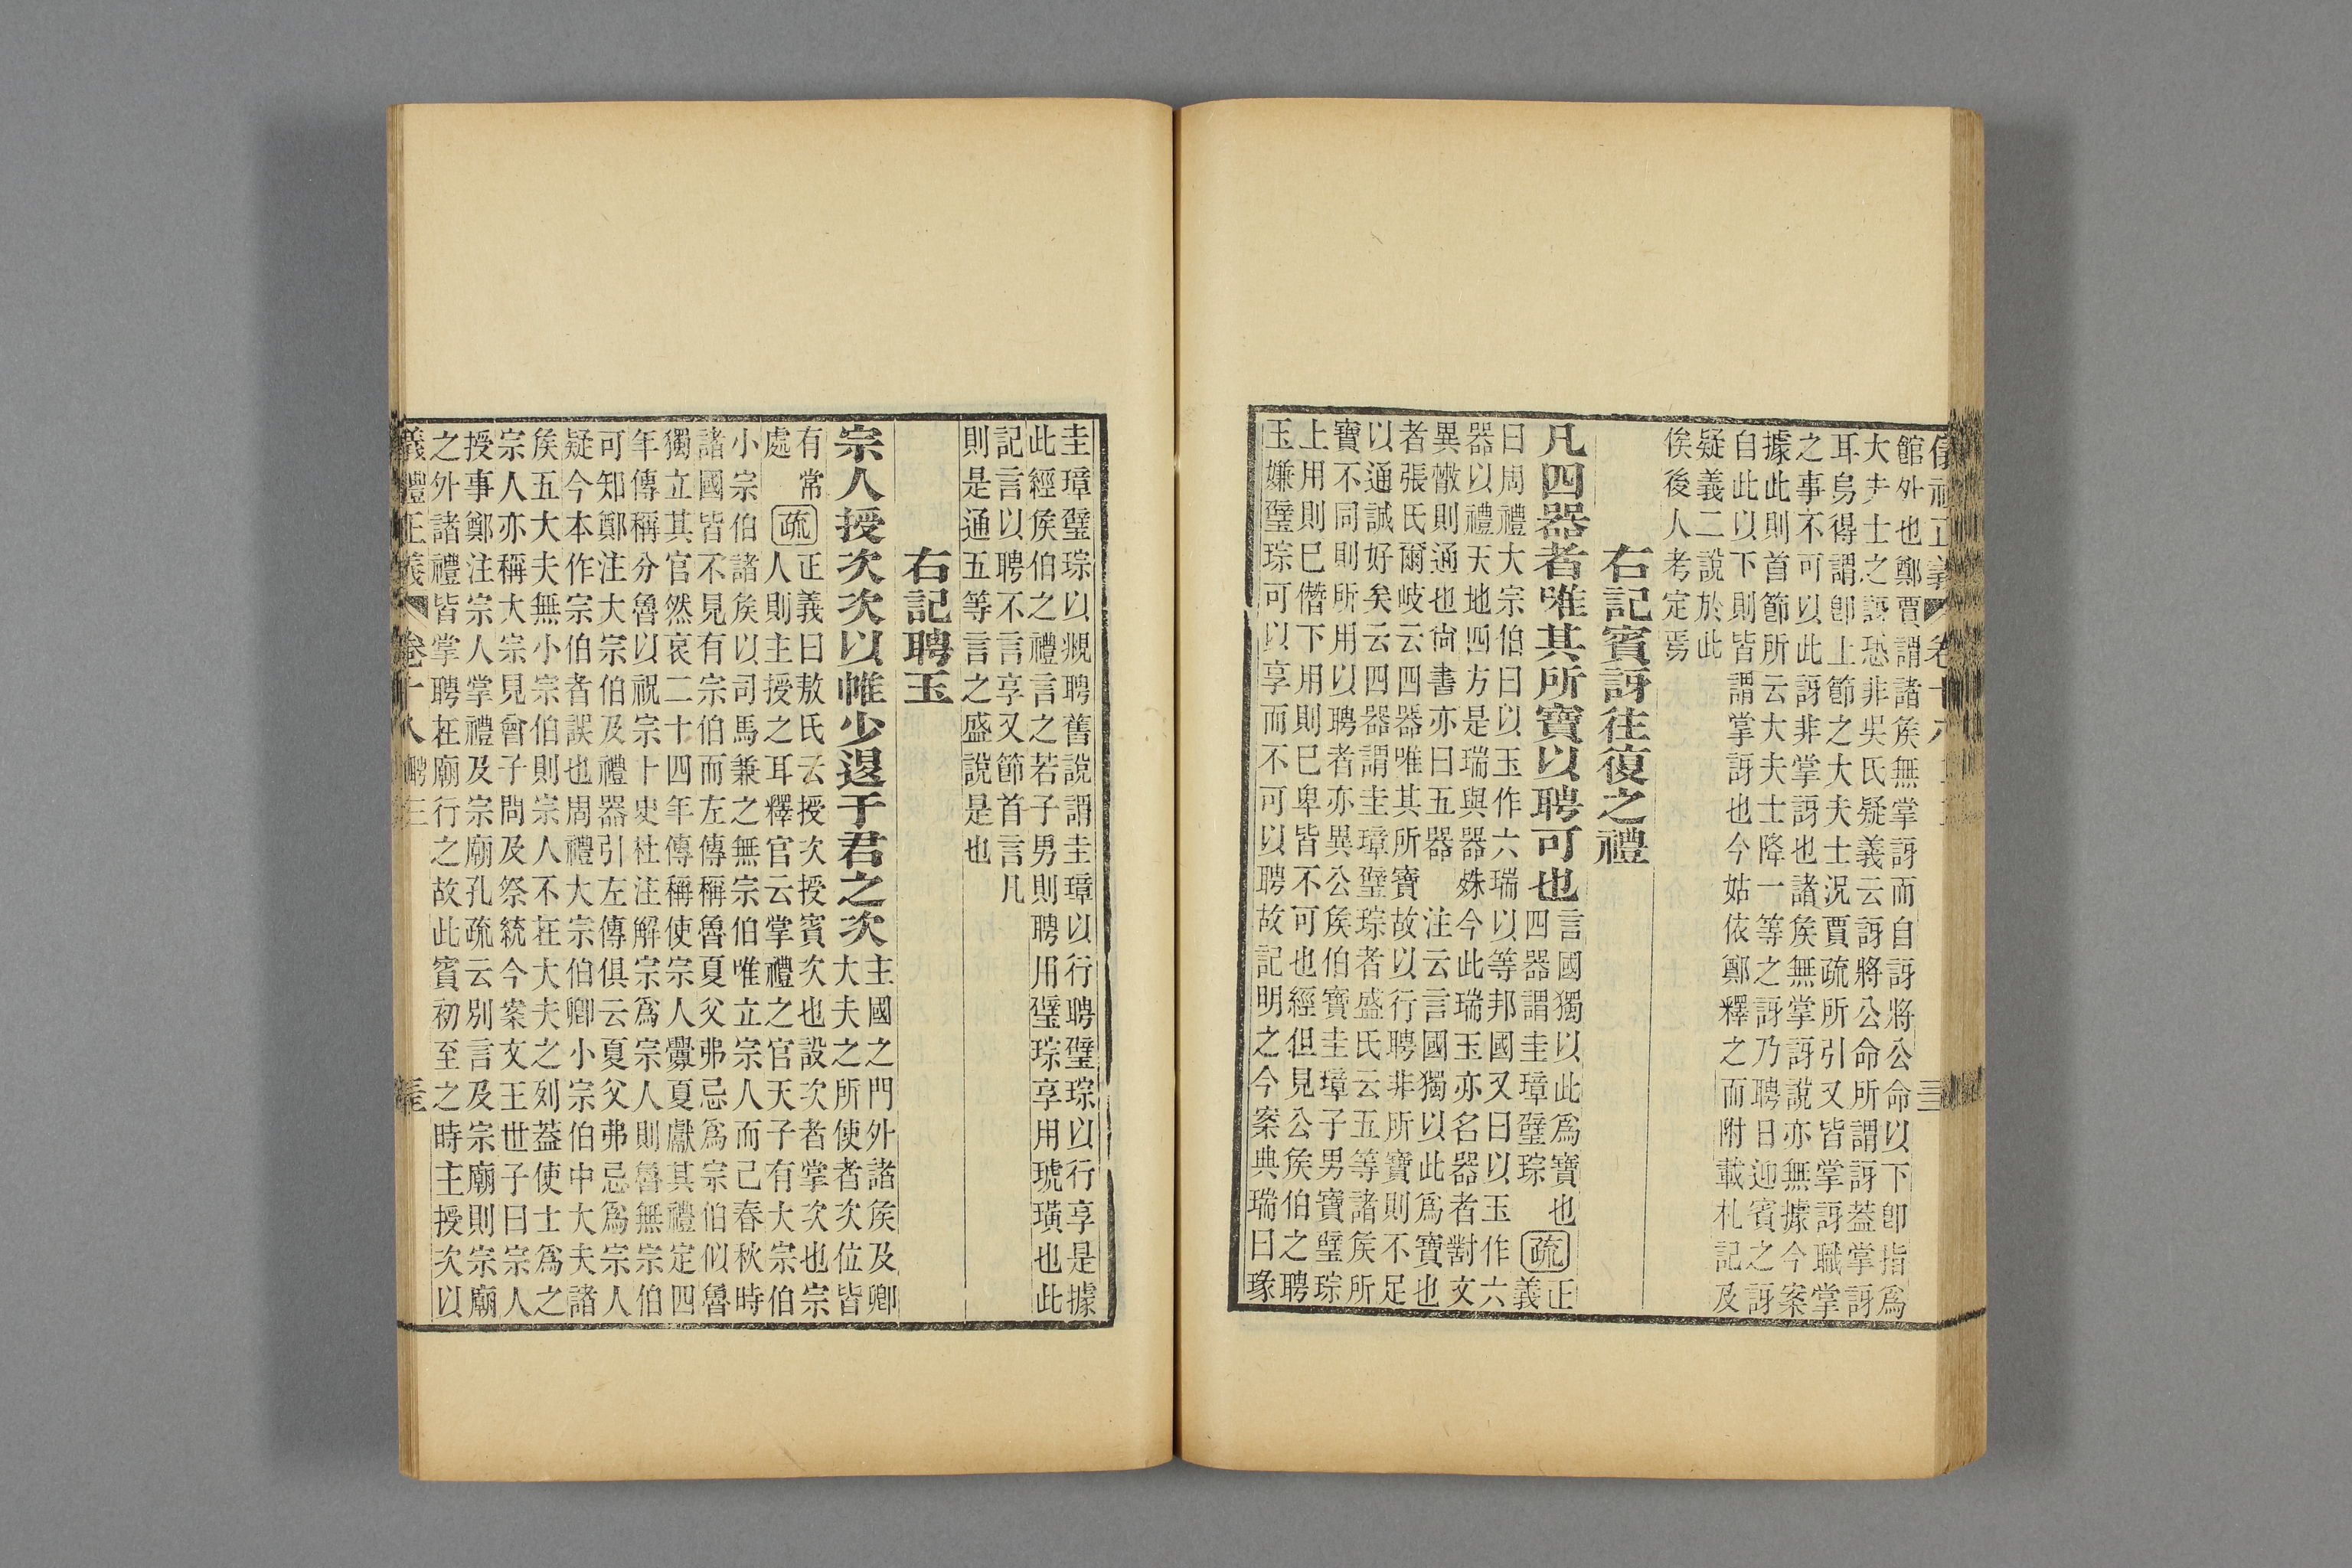 館外也鄭賈謂諸矦無掌訝而自訝將公命以下卽指爲
大夫士之訝恐非吳氏疑義云訝將公命所謂訝蓋掌訝
耳烏得謂卽上節之大夫士況賈疏所引又皆掌訝職掌
之事不可以此訝非掌訝也諸矦無掌訝說亦無據今案
據此則首節所云大夫士降一等之訝乃聘日迎賓之訝
自此以下則皆謂掌訝也今姑依鄭釋之而附載札記及
疑義二說於此
俟後人考定焉
右記賓訝往復之禮
凡四器者唯其所寶以聘可也
言國獨以此爲寶也
四器謂圭璋璧琮
疏
正
義
曰周禮大宗伯曰以玉作六瑞以等邦國又曰以玉作六
器以禮天地四方是瑞與器殊今此瑞玉亦名器者對文
異散則通也尙書亦曰五器　注云言國獨以此爲寶也
者張氏爾岐云四器唯其所寶故以行聘非所寶則不足
以通誠好矣云四器謂圭璋璧琮者盛氏云五等諸矦所
寶不同則所用以聘者亦異公矦伯寶圭璋子男寶璧琮
上用則巳僭下用則巳卑皆不可也經但見公矦伯之聘
玉嫌璧琮可以享而不可以聘故記明之今案典瑞曰瑑
圭璋璧琮以覜聘舊說謂圭璋以行聘璧琮以行享是據
此經矦伯之禮言之若子男則聘用璧琮享用琥璜也此
記言以聘不言享又節首言凡
則是通五等言之盛說是也
右記聘玉
宗人授次次以帷少退于君之次
主國之門外諸矦及卿
大夫之所使者次位皆
有常
處
疏
正義曰敖氏云授次授賓次也設次者掌次也宗
人則主授之耳釋官云掌禮之官天子有大宗伯
小宗伯諸矦以司馬兼之無宗伯唯立宗人而己春秋時
諸國皆不見有宗伯而左傳稱魯夏父弗忌爲宗伯似魯
獨立其官然哀二十四年傳稱使宗人釁夏獻其禮定四
年傳稱分魯以祝宗十史杜注解宗爲宗人則魯無宗伯
可知鄭注大宗伯及禮器引左傳俱云夏父弗忌爲宗人
疑今本作宗伯者誤也周禮大宗伯卿小宗伯中大夫諸
矦五大夫無小宗伯則宗人不在大夫之列蓋使士爲之
宗人亦稱大宗見會子問及祭統今案文王世子曰宗人
授事鄭注宗人掌禮及宗廟孔疏云別言及宗廟則宗廟
之外諸禮皆掌聘在廟行之故此賓初至之時主授次以
儀禮正義　卷十八　聘三